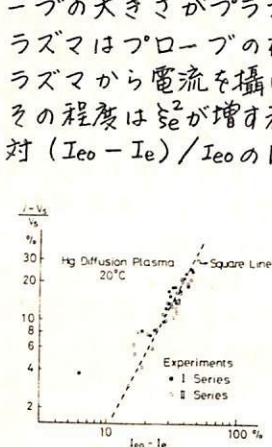 ーブの大きさがプラ
ラズマはプローブの
ラズマから電流を攝
その程度はξe²が増す
対 (Ieo - Ie) / Ieo の
1 - Vs
Vs
%
30
20
10
8
6
4
2
Hg Diffusion Plasma
20°C
Square Line
Experiments
• I Series
○ II Series
10
100 %
Ieo - Ie